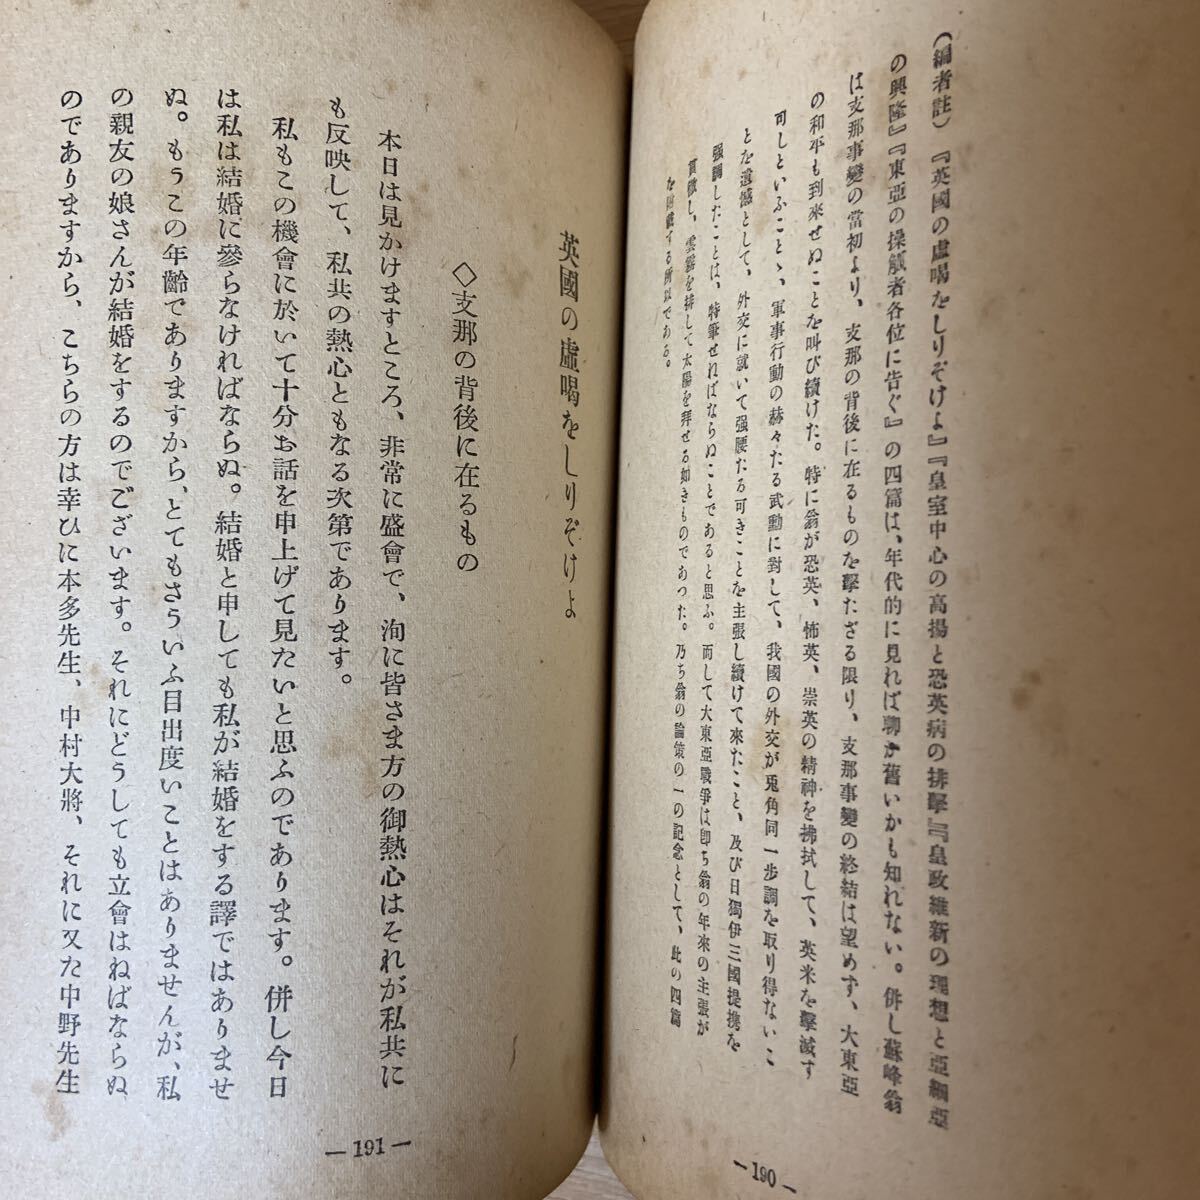 (編者註)『英國の虛喝をしりぞけよ』『皇室中心の高揚と恐英病の排擊』『皇政維新の理想と亞細亞
の興隆』『東亞の操觚者各位に吿ぐ』の四篇は、年代的に見れば聊か舊いかも知れない。併し蘇峰翁
は支那事變の當初より、支那の背後に在るものを擊たざる限り、支那事變の終結は望めず、大東亞
の和平も到來せぬことを叫び續けた。特に翁が恐英、怖英、崇英の精神を拂拭して、英米を擊滅す
可しといふことゝ、軍事行動の赫々たる武勳に對して、我國の外交が兎角同一步調を取り得ないこ
とを遺憾として、外交に就いて强腰たる可きことを主張し續けて來たこと、及び日獨伊三國提携を
强調したことは、特筆せねばならぬことであると思ふ。而して大東亞戰爭は卽ち翁の年來の主張が
貫徹し、雲霧を排して太陽を拜せる如きものであつた。乃ち翁の論策の一の記念として、此の四篇
を揭載する所以である。
—190—
英國の虛喝をしりぞけよ
◇支那の背後に在るもの
本日は見かけますところ、非常に盛會で、洵に皆さま方の御熱心はそれが私共に
も反映して、私共の熱心ともなる次第であります。
私もこの機會に於いて十分お話を申上げて見たいと思ふのであります。併し今日
は私は結婚に參らなければならぬ。結婚と申しても私が結婚をする譯ではありませ
ぬ。もうこの年齡でありますから、とてもさういふ目出度いことはありませんが、私
の親友の娘さんが結婚をするのでございます。それにどうしても立會はねばならぬ
のでありますから、こちらの方は幸ひに本多先生、中村大將、それに又た中野先生
—191—